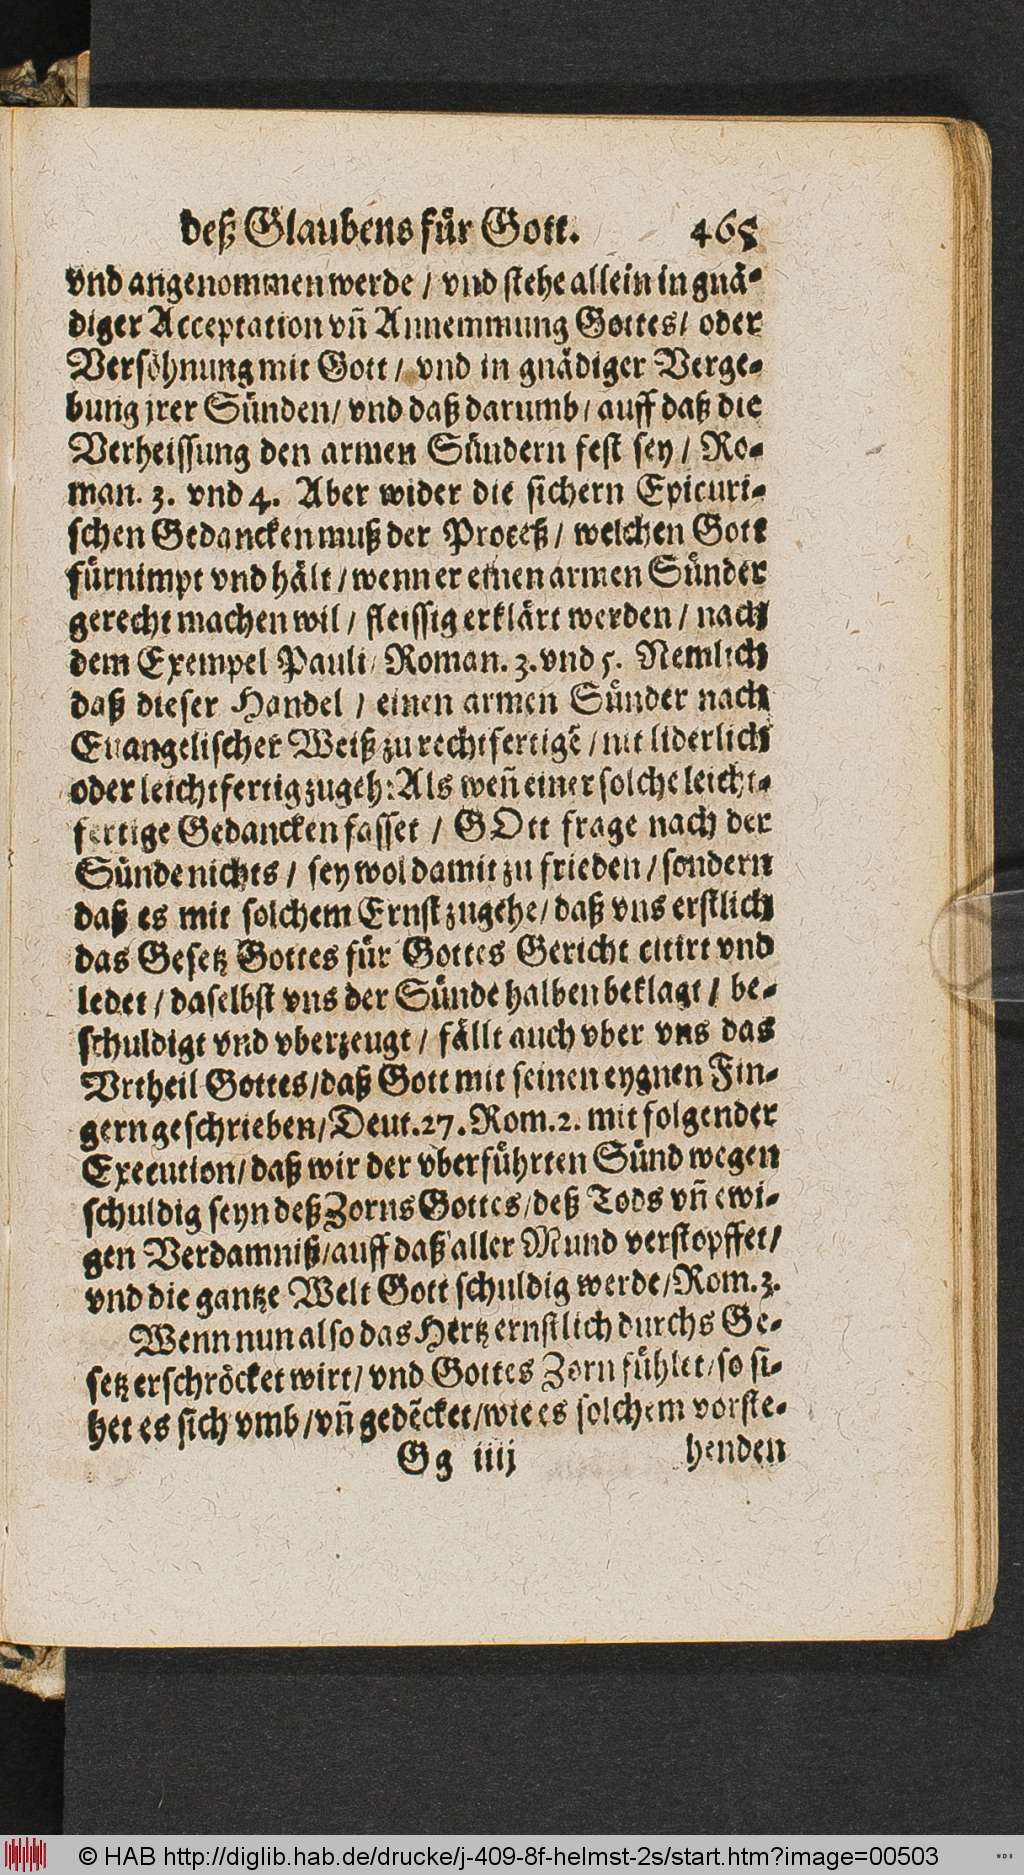 deß Glaubens fuͤr Gott. 465
vnd angenommen werde / vnd stehe allein in gnaͤ-
diger Acceptation vñ Annemmung Gottes / oder
Versoͤhnung mit Gott / vnd in gnaͤdiger Verge-
bung jrer Suͤnden / vnd daß darumb / auff daß die
Verheissung den armen Suͤndern fest sey / Ro-
man. 3. vnd 4. Aber wider die sichern Epicuri-
schen Gedancken muß der Proceß / welchen Gott
fuͤrnimpt vnd haͤlt / wenn er einen armen Suͤnder
gerecht machen wil / fleissig erklaͤrt werden / nach
dem Exempel Pauli / Roman. 3. vnd 5. Nemlich
daß dieser Handel / einen armen Suͤnder nach
Euangelischer Weiß zu rechtfertigẽ / nit liderlich
oder leichtfertig zugeh: Als weñ einer solche leicht-
fertige Gedancken fasset / GOtt frage nach der
Suͤnde nichts / sey wol damit zu frieden / sondern
daß es mit solchem Ernst zugehe / daß vns erstlich
das Gesetz Gottes fuͤr Gottes Gericht citirt vnd
ledet / daselbst vns der Suͤnde halben beklagt / be-
schuldigt vnd vberzeugt / faͤllt auch vber vns das
Vrtheil Gottes / daß Gott mit seinen eygnen Fin-
gern geschrieben / Deut. 27. Rom. 2. mit folgender
Execution / daß wir der vberfuͤhrten Suͤnd wegen
schuldig seyn deß Zorns Gottes / deß Tods vñ ewi-
gen Verdamniß / auff daß aller Mund verstopffet /
vnd die gantze Welt Gott schuldig werde / Rom. 3.
Wenn nun also das Hertz ernstlich durchs Ge-
setz erschroͤcket wirt / vnd Gottes Zorn fuͤhlet / so si-
het es sich vmb / vñ gedẽcket / wie es solchem vorste-
Gg iiij henden
© HAB http://diglib.hab.de/drucke/j-409-8f-helmst-2s/start.htm?image=00503